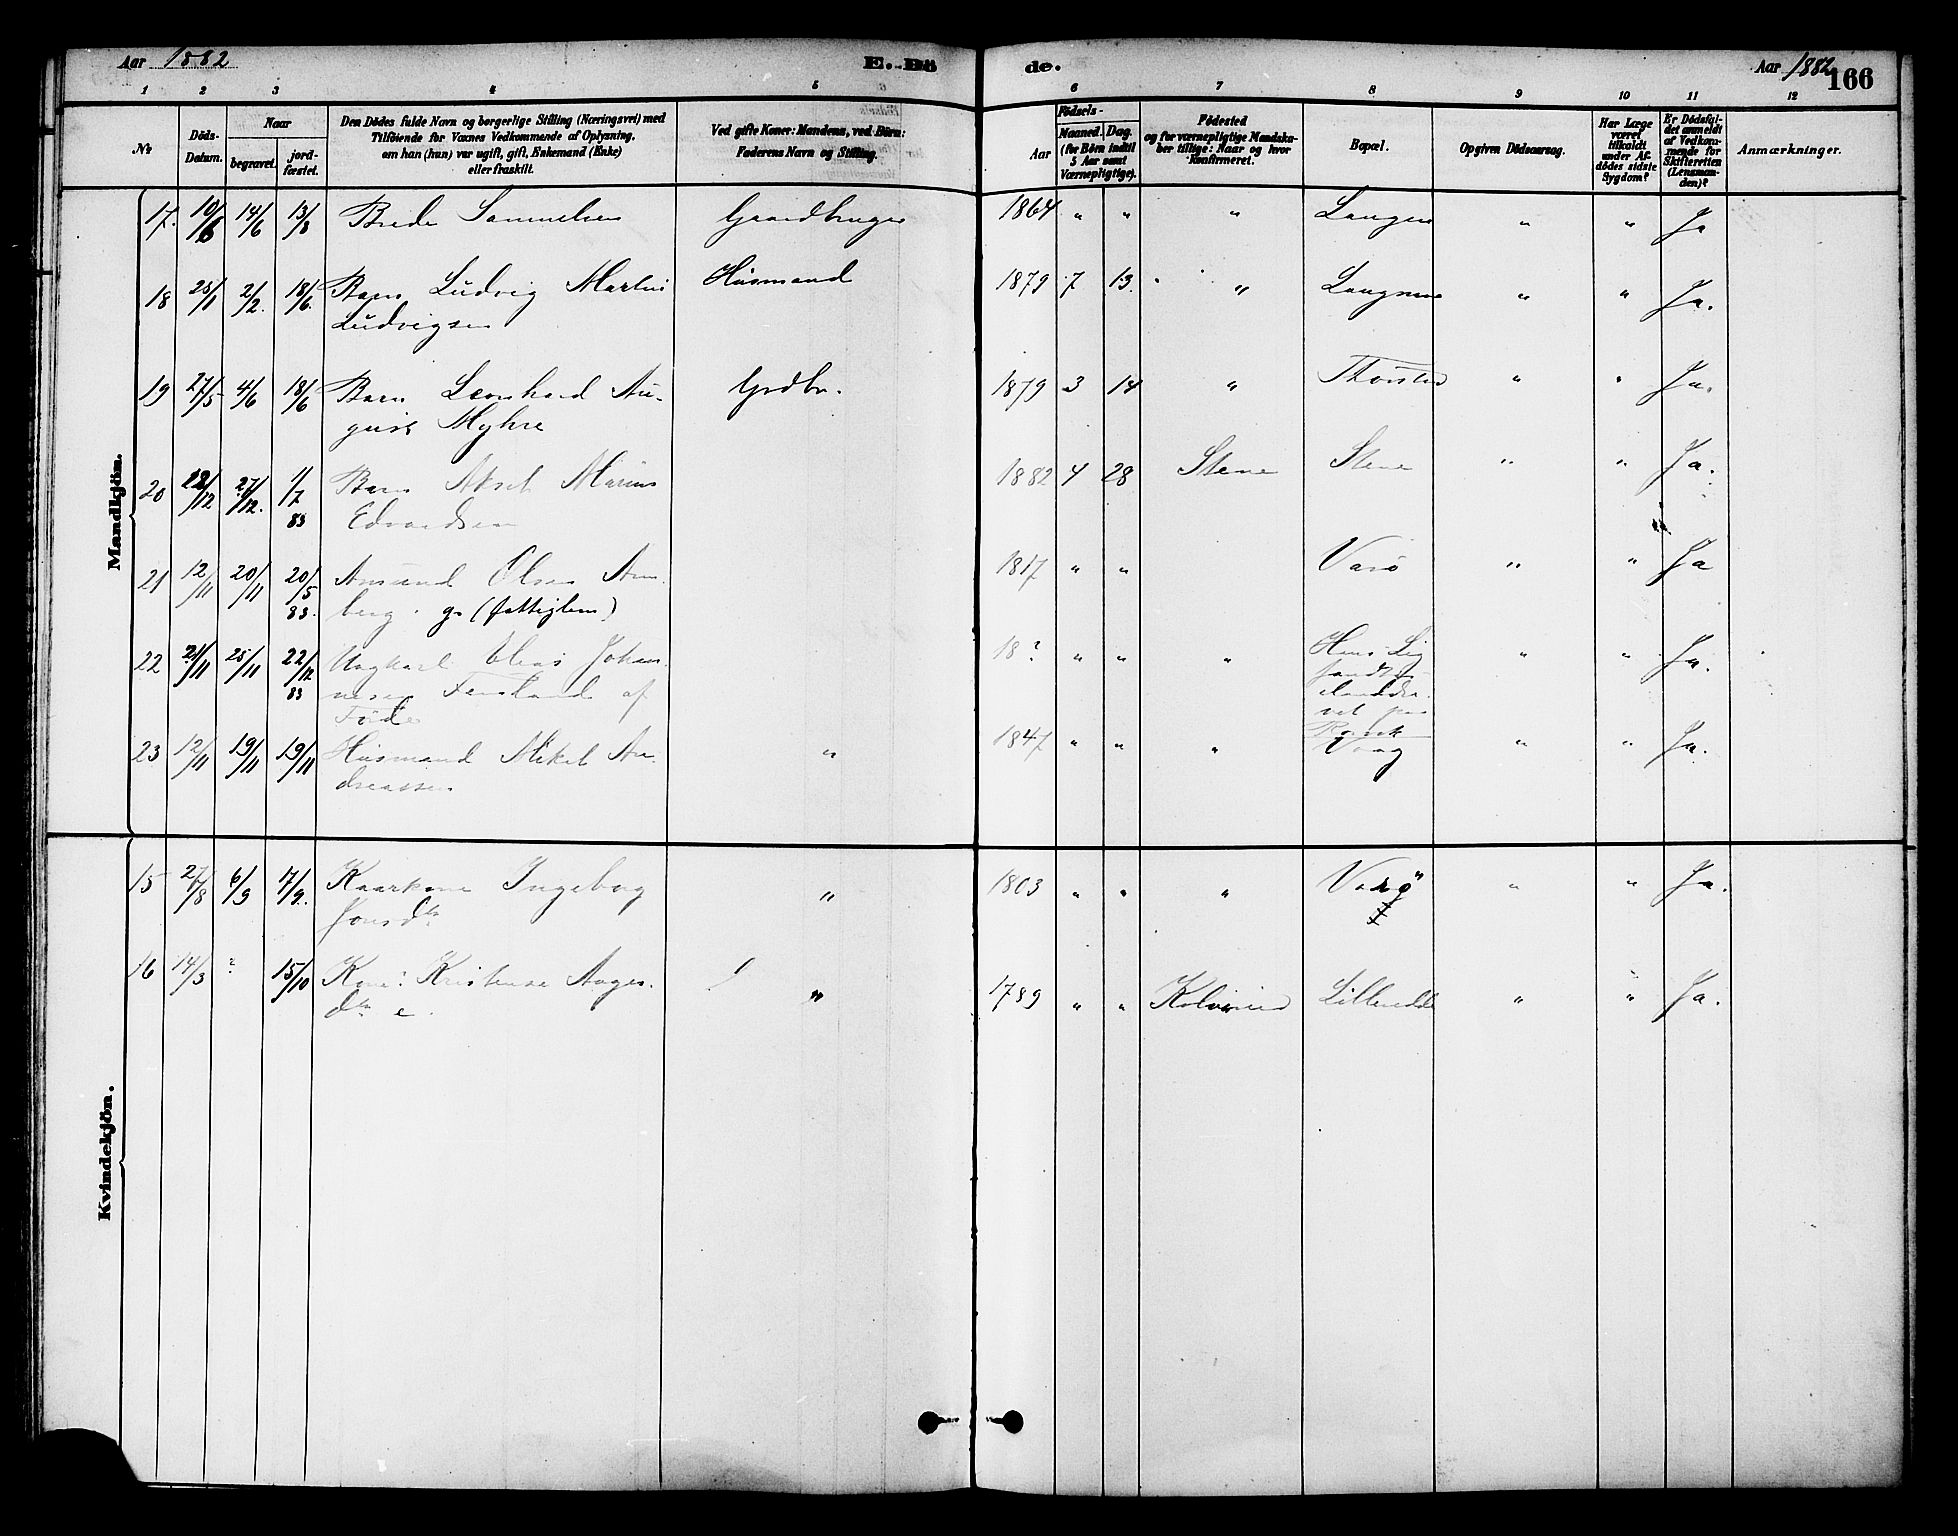 Aar 1882 E. Dö
de. Aar 1882 166
1 2 3 4 5 6 7 8 9 10 11 12
No
Döds-
Datum.
Naar
begravet.
jord-
fæstet.
Den Dödes fulde Navn og borgerlige Stilling (Næringsvei) med
Tilföiende for Voxnes Vedkommende af Oplysning,
om han (hun) var ugift, gift, Enkemand (Enke)
eller fraskilt.
Ved gifte Koner: Mandens, ved Börn:
Faderens Navn og Stilling.
Födsels-
Aar
Maaned. Dag.
(for Börn indtil
5 Aar samt
Værnepligtige).
Födested
og for værnepligtige Mandska-
ber tillige: Naar og hvor
Konfirmeret.
Bopæl.
Opgiven Dödsaarsag.
Har Læge
været
tilkaldt
under Af-
dödes sidste
Sygdom?
Er Dödsfal-
det anmeldt
af Vedkom-
mende for
Skifteretten
(Lensman-
den)?
Anmærkninger.
Mandkjön.
17. 10/6 14/6 13/8 Brede Samuelsen Gaardbruger 1864 " " " " " Ja
18 28/1 2/2. 18/6. Barn Ludvig Martin Husmand 1879 7 13. " " " Ja.
Ludvigsen
19 27/5 4/6 18/6 Barn Leonhard Au- Grdbr. 1879 3 14 " " " Ja.
gust Myhre
20 /12 27/12. 1/7 83 Barn Aksel Marius 1882 4 28 Stene Stene " " Ja.
Edvardsen
21 12/11 20/11 20/5 83. Amund Olsen 1817 " " Varö " " Ja
berg. g. (fattiglem)
22 21/11 25/11 22/12 83 Ungkarl Elias Johan- 18? " " " Hans Lig " " Ja.
nesen af
Förde
23 12/11 19/11 19/11 Husmand Mikel An- " 1847 " " " Vaag " " Ja.
dreassen
Kvindekjön.
15 27/8 6/9 7/9. Kaarkone Ingeborg " 1803 " " " Varö " " Ja.
Jonsdtr
16 14/3 ? 15/10 Kone: Kristense Aages- " 1789 " " " " Ja.
dtr e.